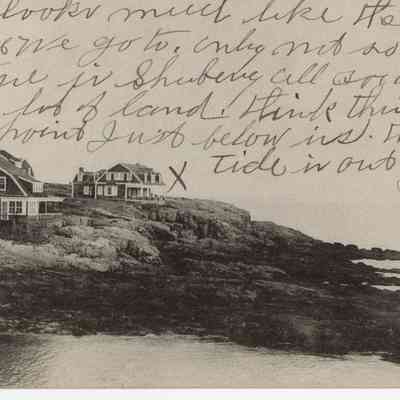 looks much like the
we go to. only not so
in Shubery all so
lot of land. think this
point just below us.
X Tide is out